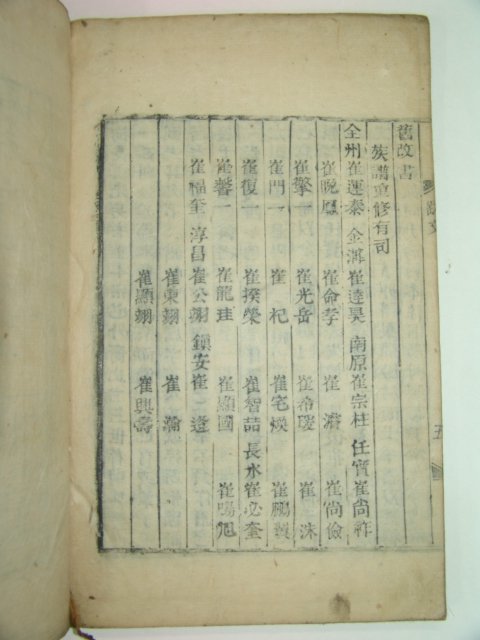 五
舊改書
族譜重修有司
全州崔運泰 金溝崔達昊 南原崔宗柱 任實崔尙祚
崔晩鳳 崔命孝 崔 崔尙儉
崔擎一 崔光岳 崔希瑗 崔洙
崔門一 崔杞 崔宅煥 崔鵬翼
崔復一 崔 榮 崔智喆 長水崔必奎
崔馨一 崔龍珪 崔顯國 崔鳴旭
崔福奎 淳昌崔公翊 鎭安崔二逵
崔東翊 崔瀚
崔灝翊 崔興壽